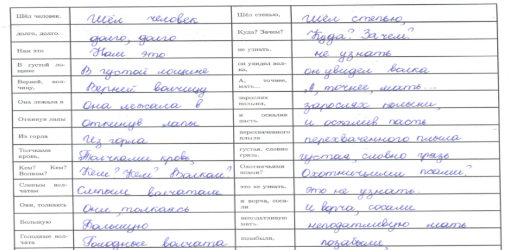 Шёл человек. Шёл человек Шёл степью, Шёл степью,
долго, долго. долго, долго Куда? Зачем? Куда? Зачем?
Нам это Нам это не узнать. не узнать
В густой лощине В густой лощине он увидел волка, он увидел волка
Верней, волчицу, Верней волчицу А, точнее, мать... А, точнее, мать...
Она лежала в Она лежала в зарослях полыни, зарослях полыни,
Откинув лапы Откинув лапы и оскалив пасть. и оскалив пасть
Из горла Из горла перехваченного плыла перехваченного плыла
Толчками кровь, Толчками кровь, густая, словно грязь. густая, словно грязь
Кем? Кем? Волком? Кем? Кем? Волкам? Охотничьими псами? Охотничьими псами?
Слепым волчатам Слепым волчатам это не узнать. это не узнать.
Они, толкаясь Они, толкаясь и ворча, сосали и ворча, сосали
Большую Большую неподатливую мать. неподатливую мать
Голодные волчата Голодные волчата позабыли, позабыли,